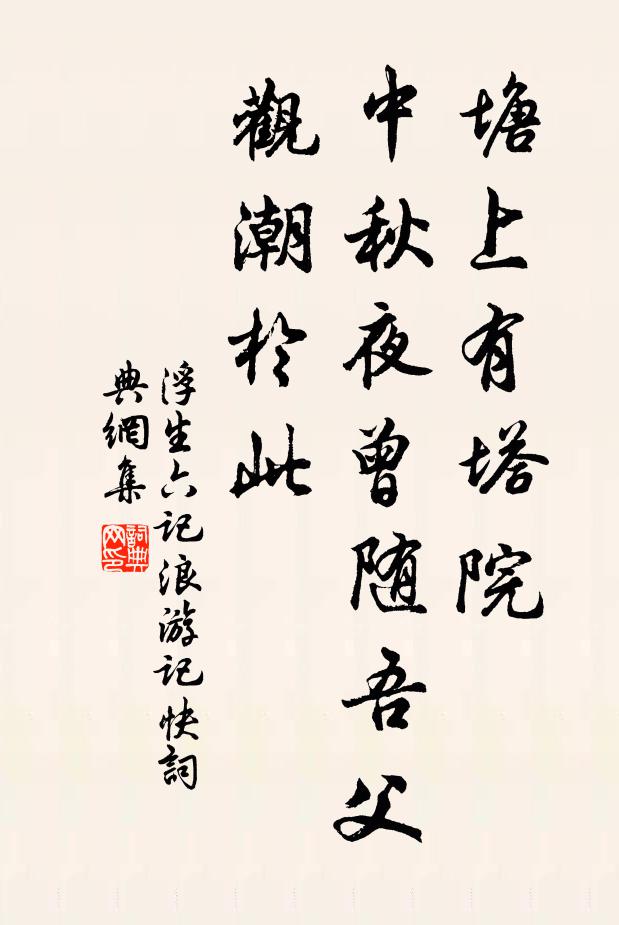 塘上有塔院
中秋夜曾随吾父
觀潮於此
浮生六记浪游记快詞
典網集
詞典
网印